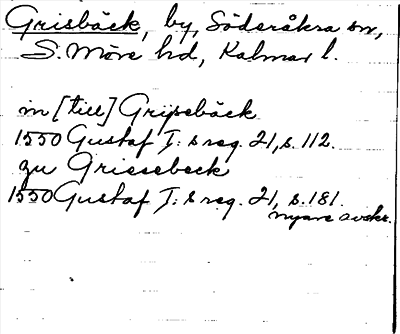 Grisbäck, by, Söderåkra sn,
S. Möre hd, Kalmar l.
in [till] Gripebäck
1550 Gustaf I: s reg. 21, s. 112.
zu Griessebeck
1550 Gustaf I: s reg. 21, s. 181.
nyare avskr.